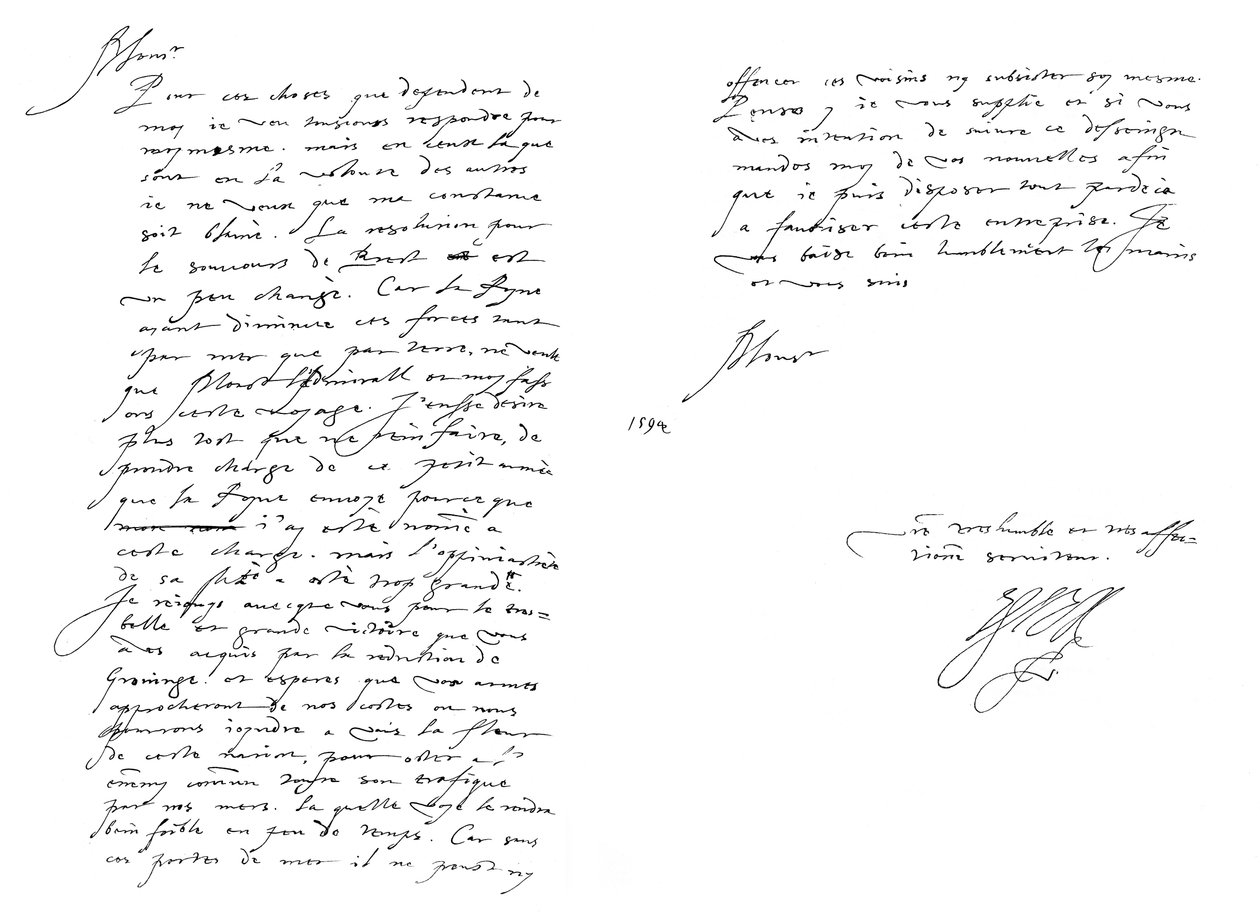 Monsr
Pour ces choses que dependent de
moy ie veu tousiours respondre pour
moymesme. mais en ceux la que
sont en la volonte des autres
ie ne veux que ma constance
soit blamè. La resolution pour
le secours de Brest est
un peu changè. Car la Royne
ayant diminuee ces forces tant
par mer que par terre, ne veult
que Monsr l'Admirall et moy fass
ons ceste voyage. J'eusse desire
plus tost que ne rein faire, de
prendre charge de ce petit armèe
que la Royne envoye pource que
i'ay estè nomè a
ceste charge. mais l'oppiniastrète
de sa Maté a estè trop grande.
Je reiouys avecque vous pour le tres=
belle et grande victoire que vous
aves acquis par la reduction de
Groninge. et esperes que vos armes
approcheront de nos costes ou nous
pourrons ioyndre a vous la fleur
de ceste nation, pour oster a l'
ennemy comun toute son trafique
par nos mers. la quelle voye le rendra
bein foible en peu de temps. Car sans
ces portes de mer il ne peust ny
offencer ces voisins ny subsister soy mesme.
Penses y ie vous supplie et si vous
aves intention de suivre ce desseign
mandes moy de vos nouvelles afin
que ie puis disposer tout pardeça
a favoriser ceste entreprise. Je
vous baise bein humblement les mains
et vous suis
Monsr
1594
Vre treshumble et tresaffec=
tionè serviteur.
Essex